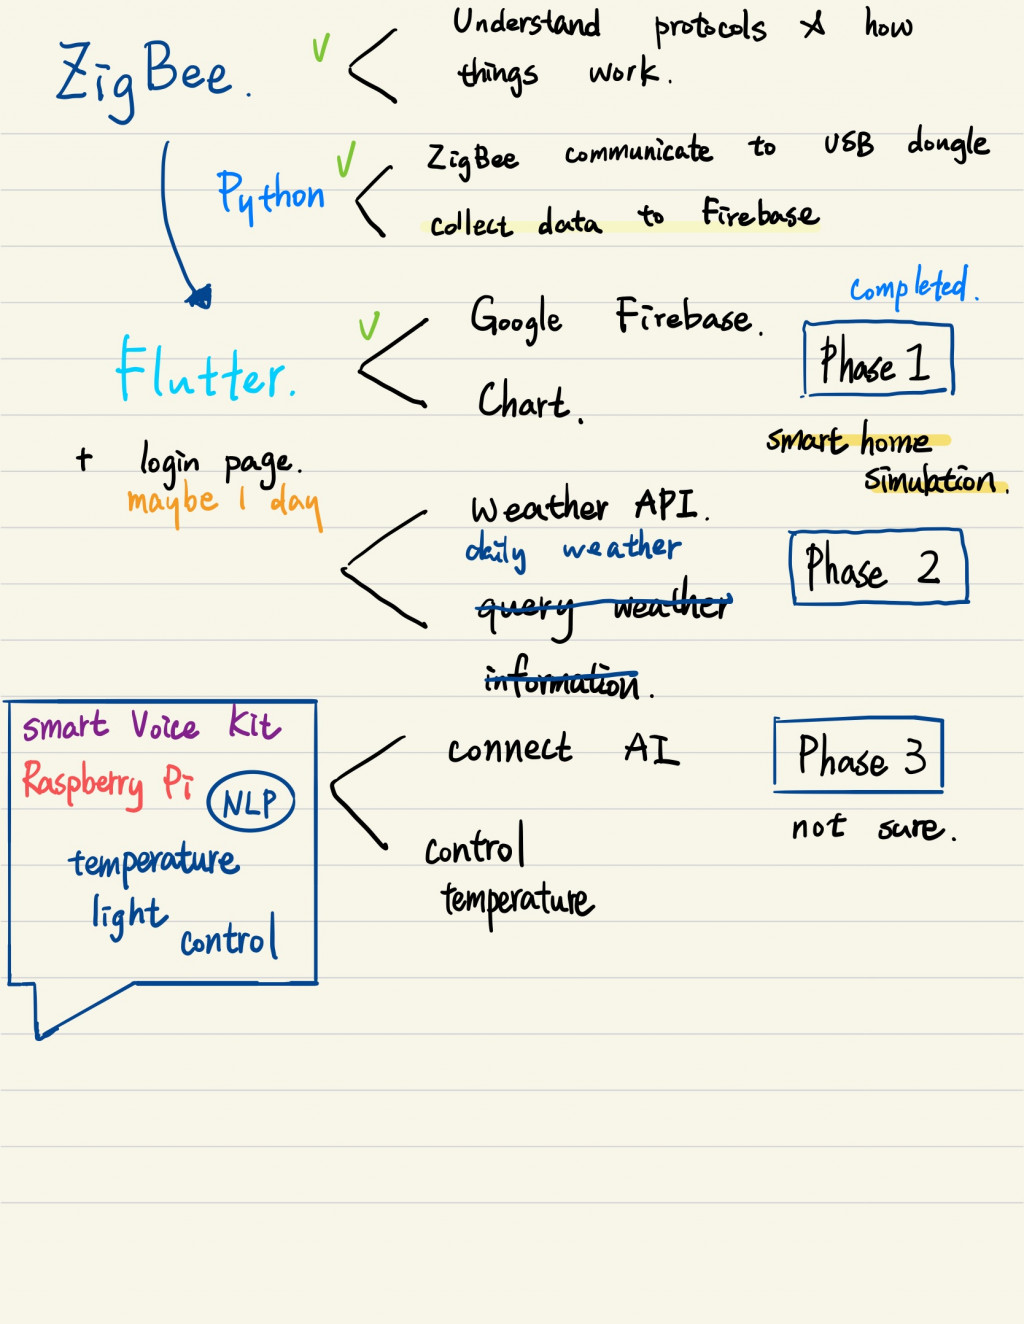 ZigBee.
✓
Understand protocols & how
things work.
Python
✓
ZigBee communicate to USB dongle
collect data to Firebase
Flutter.
✓
Google Firebase.
Chart.
completed.
Phase 1
smart home
simulation.
+ login page.
maybe 1 day
Weather API.
daily weather
query weather
information.
Phase 2
smart Voice Kit
Raspberry Pi
NLP
temperature
light
control
connect AI
control
temperature
Phase 3
not sure.